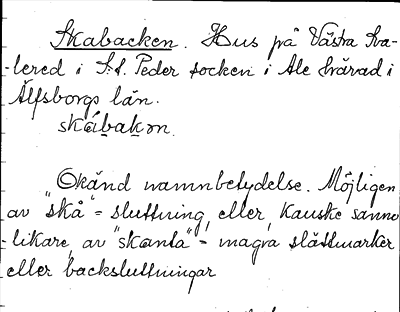 Skabacken. Hus på Västra Sva-
-lered i S:t. Peder socken i Ale härad i
Älfsborgs län.
skábakon.
Okänd namnbetydelse. Möjligen
av "skå" = sluttning, eller, kanske sanno-
-likare, av "skanta" = magra slåttmarker
eller backsluttningar